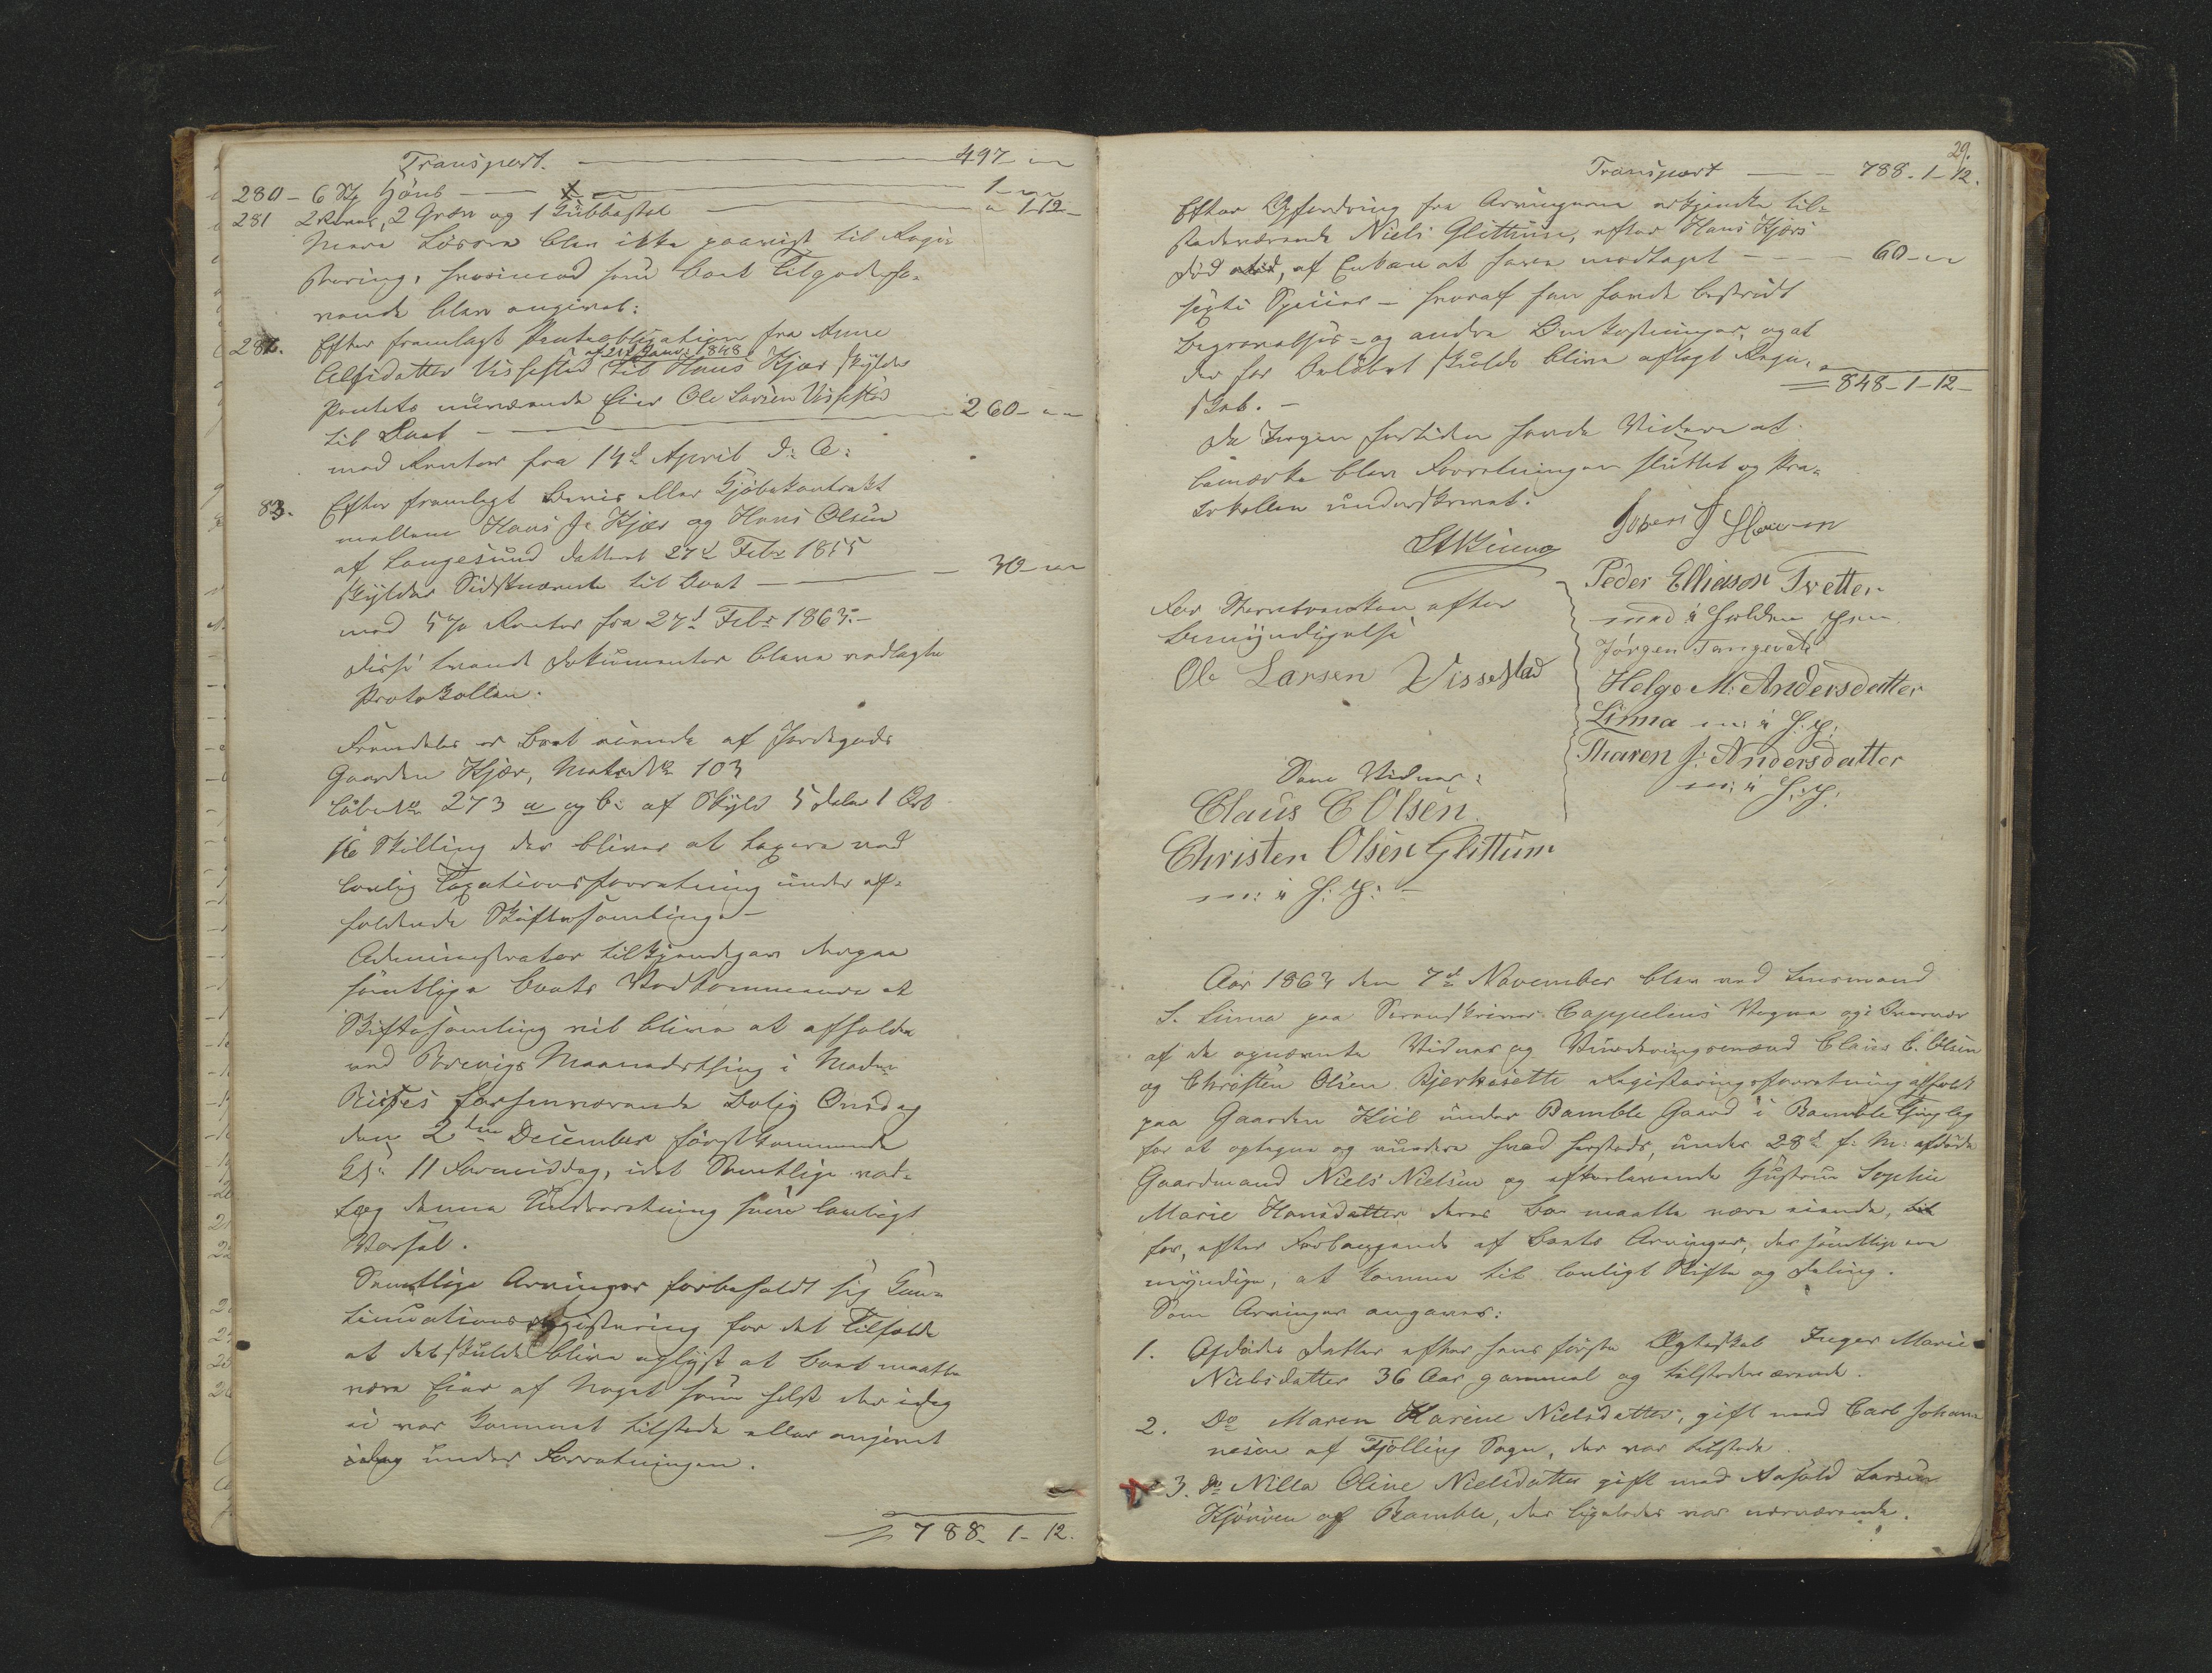 Transport. 497 " "
280 - 6 Stk Höns 1 - " "
281 2 River, 2 Græv og 1 Gubbestol " 1-12-
Mere Lösøre blev ikke paavist til Regi-
strering, hvorimod som Boet tilgodeha-
vende blev angivet:
282. Efter fremlagt Panteobligation fra Anne
Alfsdatter Vissestad af 21d Janr. 1848 til Hans Kjær skylder
Pantets nuværende Eier Ole Larsen Vissestad
til Boet 260 - " "
med Renter fra 14d April d: A:
83. Efter fremlagt Bevis eller Kjöbekontrakt
mellem Hans J. Kjær og Hans Olsen
af Langesund dateret 27d Febr 1855
skylder Sidstnævnte til Boet 30 - " "
med 5 % Renter fra 27d Febr 1863.-
Disse tvende Dokumenter bleve vedlagte
Protokollen.
Fremdeles er Boet eiende af Jordegods
Gaarden Kjær, Matr № 103
Löbe № 273 a og b: af Skyld 5 Daler 1 Ort
16 Skilling der bliver at taxere ved
lovlig Taxationsforretning under af-
holdende Skiftesamlinge-
Administrator tilkjendegav derpaa
samtlige Boets Vedkommende at
Skiftesamling vil blive at afholde
ved Brevigs Maanedsthing i Madm
Riises forhenværende Bolig Onsdag
den 2den December förstkommende
Kl. 11 Formiddag, idet Samtlige ved-
tog denne Underretning som lovligt
Varsel.
Samtlige Arvinger forbeholdt sig Con-
tinuationsregistrering for det Tilfælde
at det skulde blive oplyst at Boet maatte
være Eier af Noget som helst der idag
ei var kommet tilstede eller angivet
idag under Forretningen.
788- 1- 12.
29.
Transport 788. 1- 12.
Efter Opfordring fra Arvingerne erkjendte til-
stedeværende Niels Glittum, efter Hans Kjærs
Död, af Enken at have modtaget 60 - "
sexti Species - hvoraf han havde bestridt
Begravelses- og andre Omkostninger, og at
der for Beløbet skulde blive aflagt Regn-
skab. - 848-1-12-
Da Ingen fortiden havde Videre at
bemærke blev Forretningen sluttet og Pro-
tokollen underskrevet.
Peder Elliason Tvetten
med i Holden Pen
Jörgen Tangevald
Helge M. Andersdatter
Linna m: i H: P:
Maren J: Andersdatter
m: i H: P:
For Stervboenken efter
Bemyndigelse
Ole Larsen Vissestad
Som Vidner:
Claus C Olsen
Christen Olsen Glittum
m: i H: P: -
Aar 1863 den 7d November blev ved Lensmand
S. Linna paa Sorenskriver Cappelens Vegne og i Overvær
af de opnævnte Vidner og Vurderingsmænd Claus C. Olsen
og Christen Olsen Bjerkesette Registreringsforretning afholdt
paa Gaarden Hiil under Bamble Gaard i Bamble Thinglag
for at optegne og vurdere hvad herstedt, under 28d f: M: afdöde
Gaardmand Niels Nielsen og efterlevende Hustru Sophie
Marie Hansdatter deres Bo maatte være eiende,
for, efter Forlangende af Boets Arvinger, der samtlige ere
myndige, at komme til lovligt Skifte og Deling.
Som Arvinger angaves:
1. Afdödes Datter efter hans förste Ægteskab Inger Marie
Nielsdatter 36 Aar gammel og tilstedeværende.
2. Do Maren Karine Nielsdatter, gift med Carl Johan-
nesen af Tjölling Sogn, der var tilstede.
3. Do Nille Oline Nielsdatter gift med Aasold Larsen
Kjönöen af Bamble, der ligeledes var nærværende.